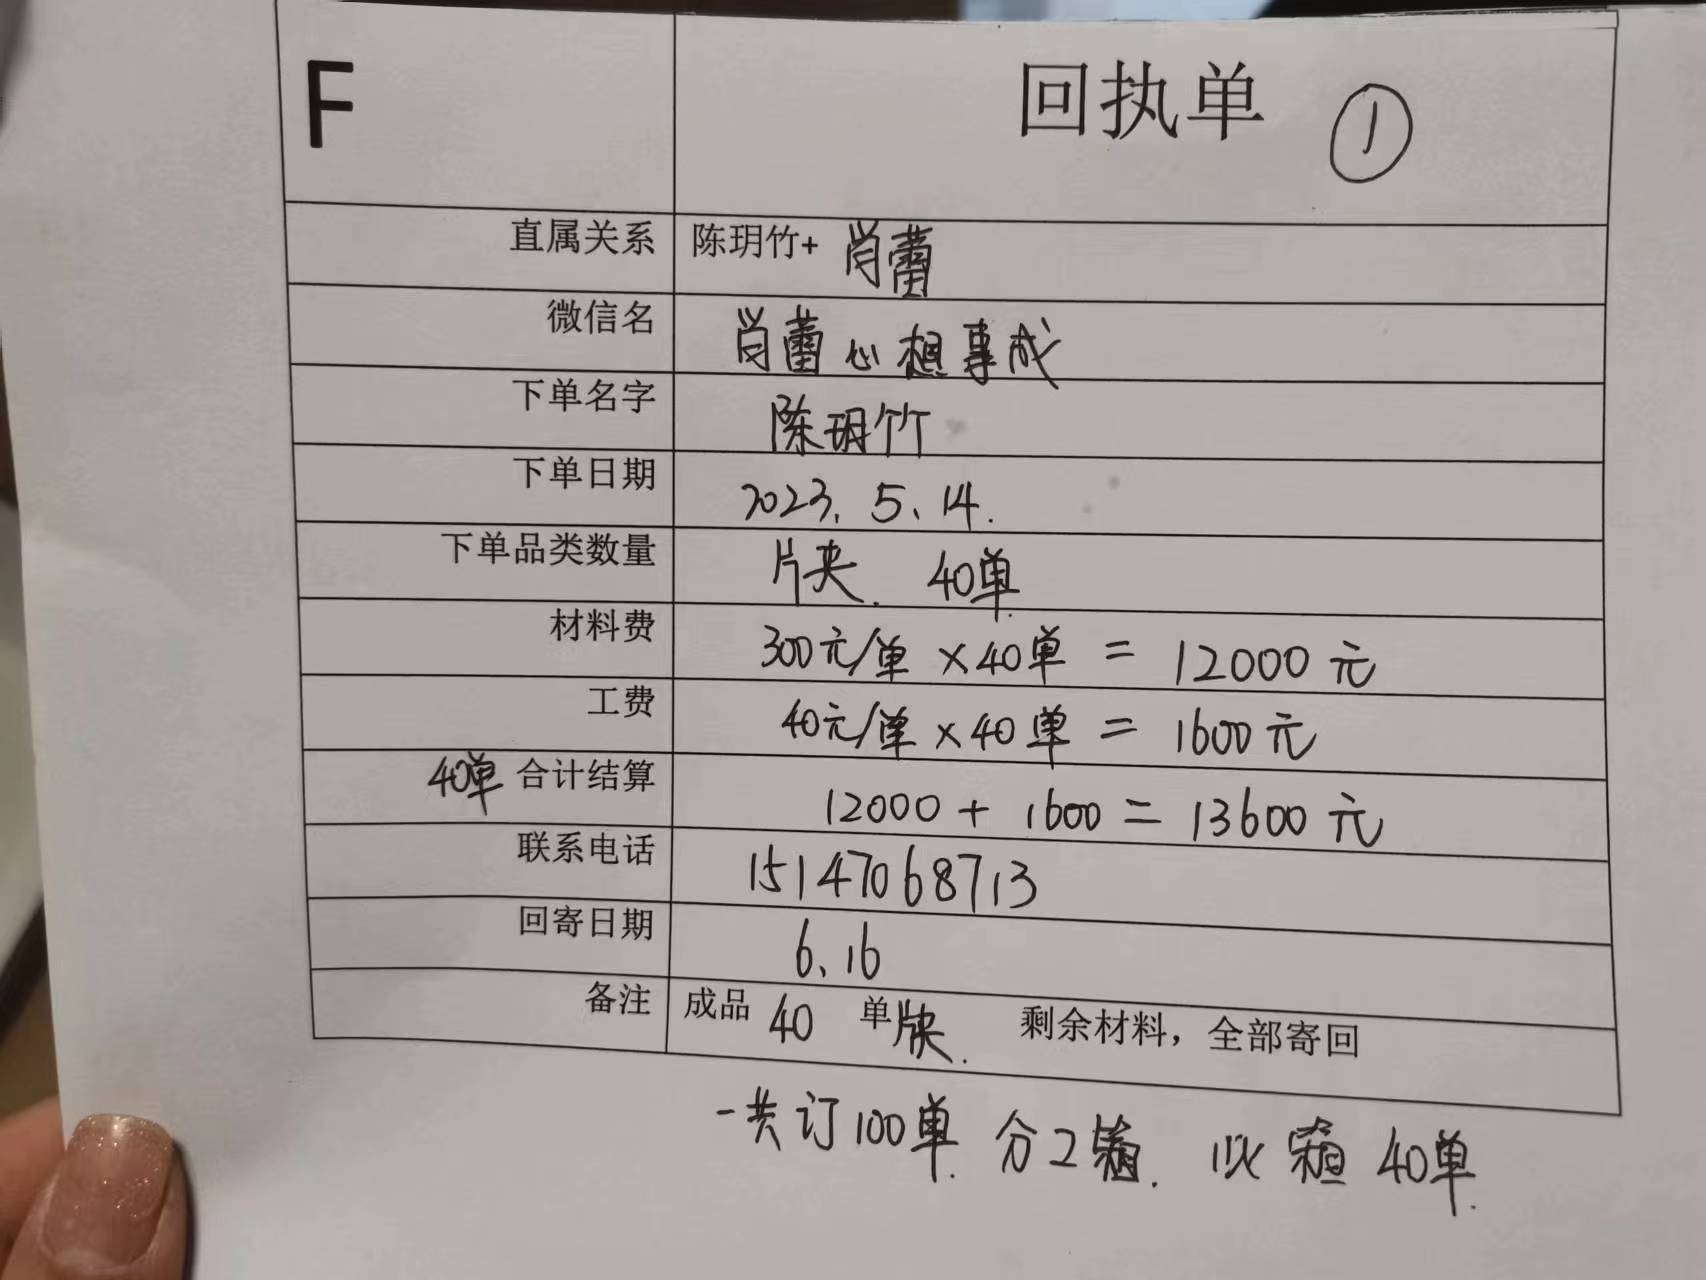 F
回执单 ①
直属关系 陈玥竹+ 肖蕾
微信名 肖蕾心想事成
下单名字 陈玥竹
下单日期 2023.5.14.
下单品类数量 片夹. 40单.
材料费 300元/单×40单 = 12000元
工费 40元/单×40单 = 1600元
40单 合计结算 12000 + 1600 = 13600元
联系电话 15147068713
回寄日期 6.16
备注 成品 40 单 片夹. 剩余材料，全部寄回
一共订100单. 分2箱. 此箱40单.